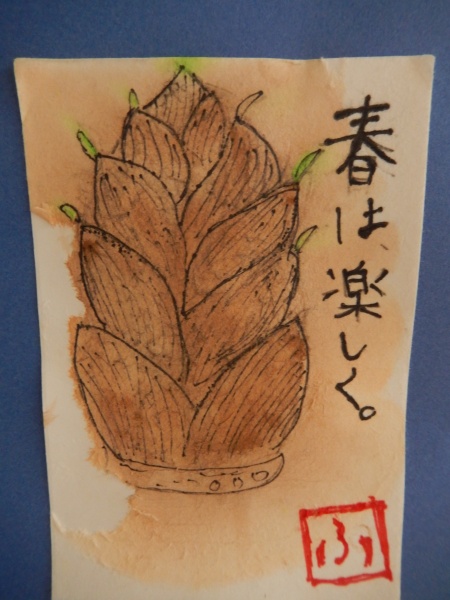 春は、楽しく。
ふ